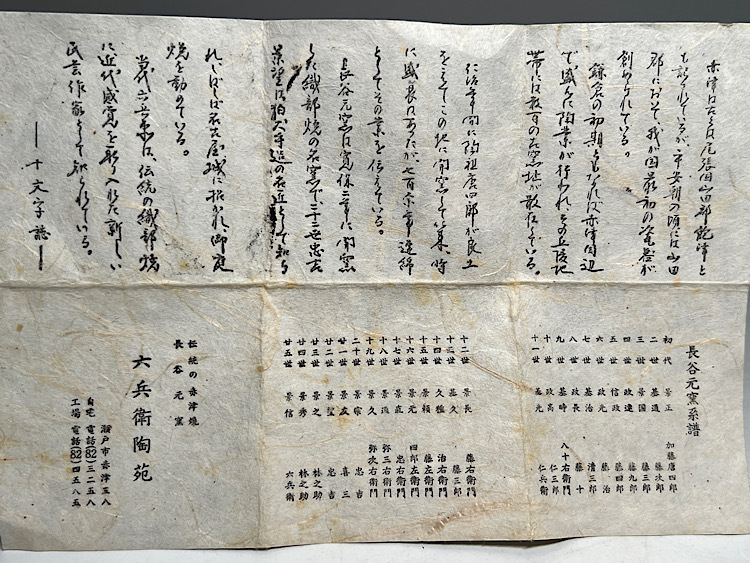 赤津は古くは尾張国山田郡飽津と
も記されているが、平安朝の頃には山田
郡において、我が国最初の瓷器が
創められている。
鎌倉の初期ともなれば赤津周辺
で盛んに陶業が行われ、その丘陵地
帯には数百の古窯址が散在している。
仁治年間に陶祖唐四郎が良土
をもとめこの地に開窯して以来、時
に盛衰はあったが、七百余年連綿
としてその業を伝えている。
長谷元窯は寛保二年に開窯
した織部焼の名窯で二十二世忠吉
景聖は狛犬手造の名匠として知ら
れ、しばしば名古屋城に招かれ、御庭
焼を勤めている。
当代六兵衛は、伝統の織部焼
に近代感覚を取り入れた新しい
民芸作家として知られている。
── 十文字誌 ──
長谷元窯系譜
初代 景正 加藤唐四郎
二世 基通 藤次郎
三世 景国 藤三郎
四世 政連 藤九郎
五世 信政 藤四郎
六世 政元 藤治
七世 基治 清三郎
八世 政長 藤十
九世 基時 八十右衛門
十世 政高 仁三郎
十一世 基元 仁兵衛
十二世 景長 藤右衛門
十三世 基久 藤三郎
十四世 久雅 治右衛門
十五世 景頼 藤左衛門
十六世 景元 四郎左衛門
十七世 景直 忠右衛門
十八世 景通 弥三右衛門
十九世 景久 弥次右衛門
二十世 景宗 忠吉
廿一世 景友 喜三
廿二世 景聖 忠吉
廿三世 景之 林之助
廿四世 景秀 林之助
廿五世 景信 六兵衛
伝統の赤津焼
長谷元窯
六兵衛陶苑
瀬戸市赤津五八
自宅 電話(82)三二五八
工場 電話(82)四五八五